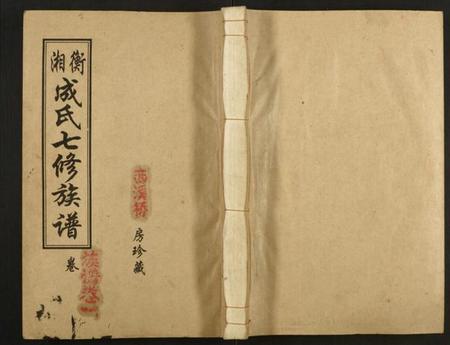 衡湘
成氏七修族谱
卷
西溪桥
房珍藏